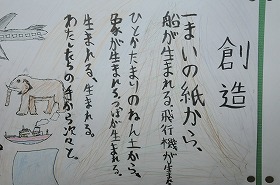 創造
一まいの紙から、
船が生まれる。飛行機が生ま
ひとかたまりのねん土から、
象が生まれる。つぼが生まれる。
生まれる、生まれる。
わたしたちの手から次々と。